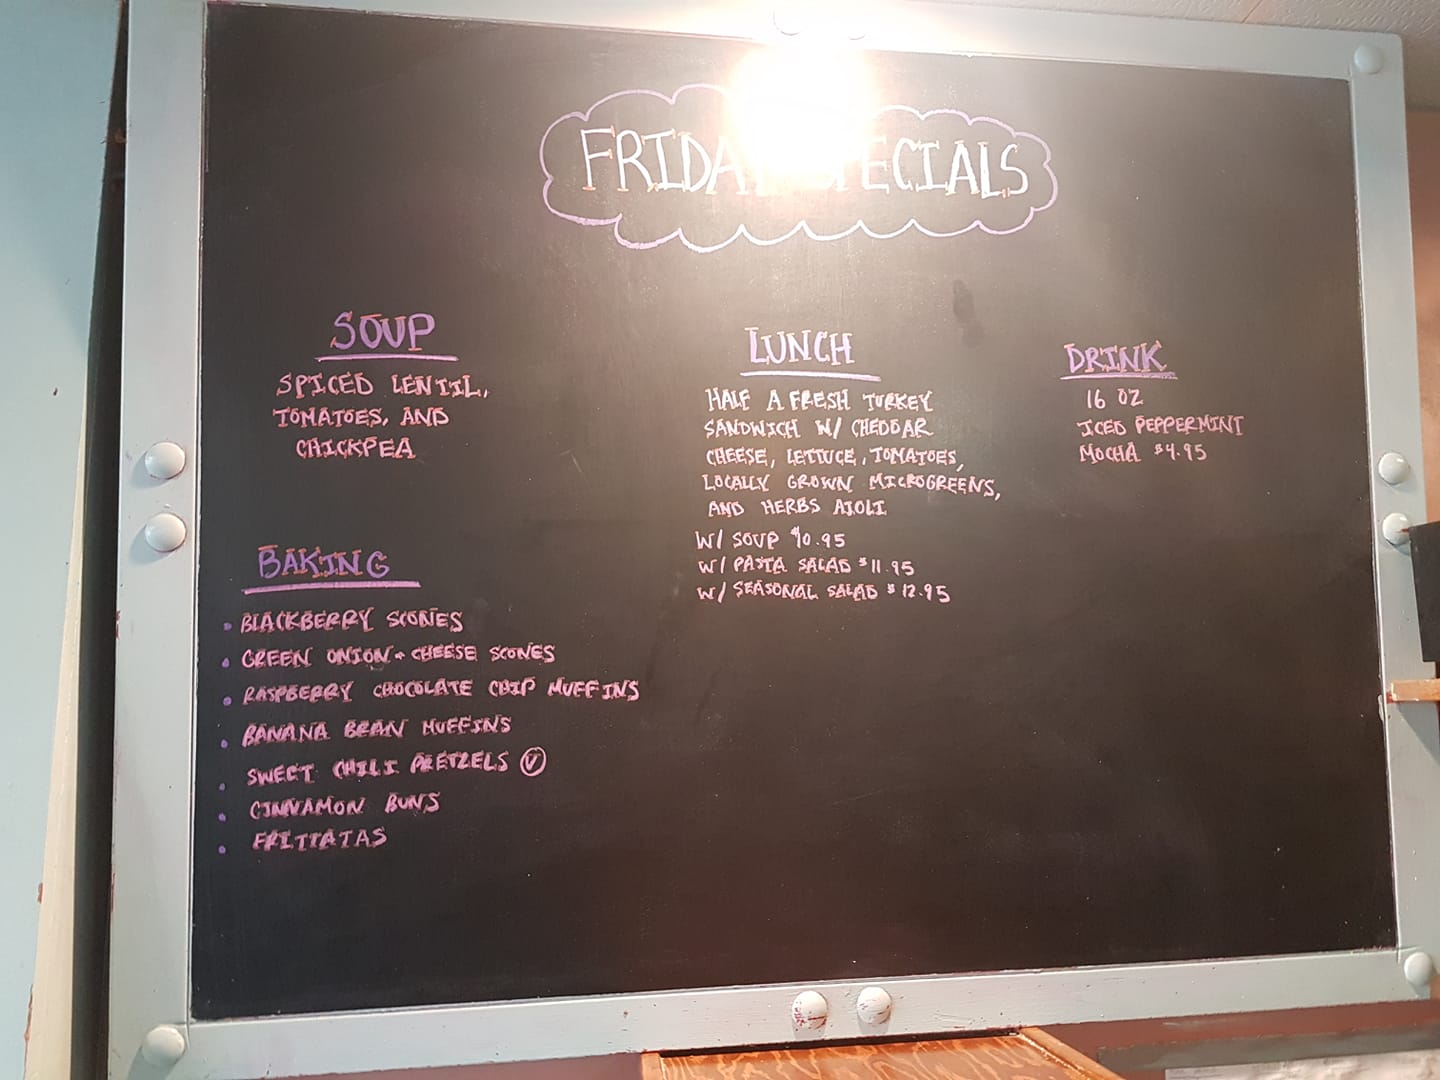 FRIDAY SPECIALS
SOUP
SPICED LENTIL,
TOMATOES, AND
CHICKPEA
BAKING
• BLACKBERRY SCONES
• GREEN ONION + CHEESE SCONES
• RASPBERRY CHOCOLATE CHIP MUFFINS
• BANANA BRAN MUFFINS
• SWEET CHILI PRETZELS Ⓥ
• CINNAMON BUNS
• FRITTATAS
LUNCH
HALF A FRESH TURKEY
SANDWICH W/ CHEDDAR
CHEESE, LETTUCE, TOMATOES,
LOCALLY GROWN MICROGREENS,
AND HERBS AIOLI
W/ SOUP $10.95
W/ PASTA SALAD $11.95
W/ SEASONAL SALAD $12.95
DRINK
16 OZ
ICED PEPPERMINT
MOCHA $4.95